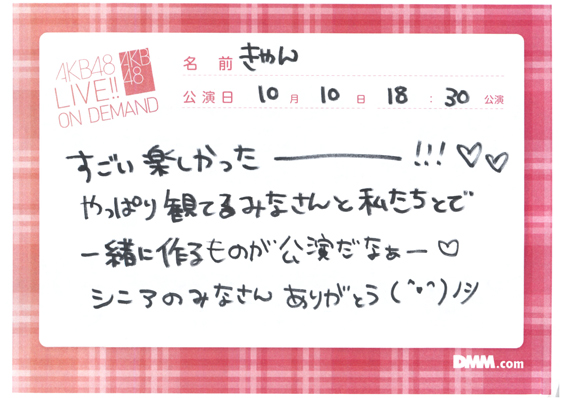 AKB48
LIVE!!
ON DEMAND
AKB
48
名前 きゃん
公演日 10月 10日 18:30 公演
すごい楽しかった―――!!!♡♡
やっぱり観てるみなさんと私たちとで
一緒に作るものが公演だなぁー♡
シニアのみなさん ありがとう(^•^)ノシ
DMM.com